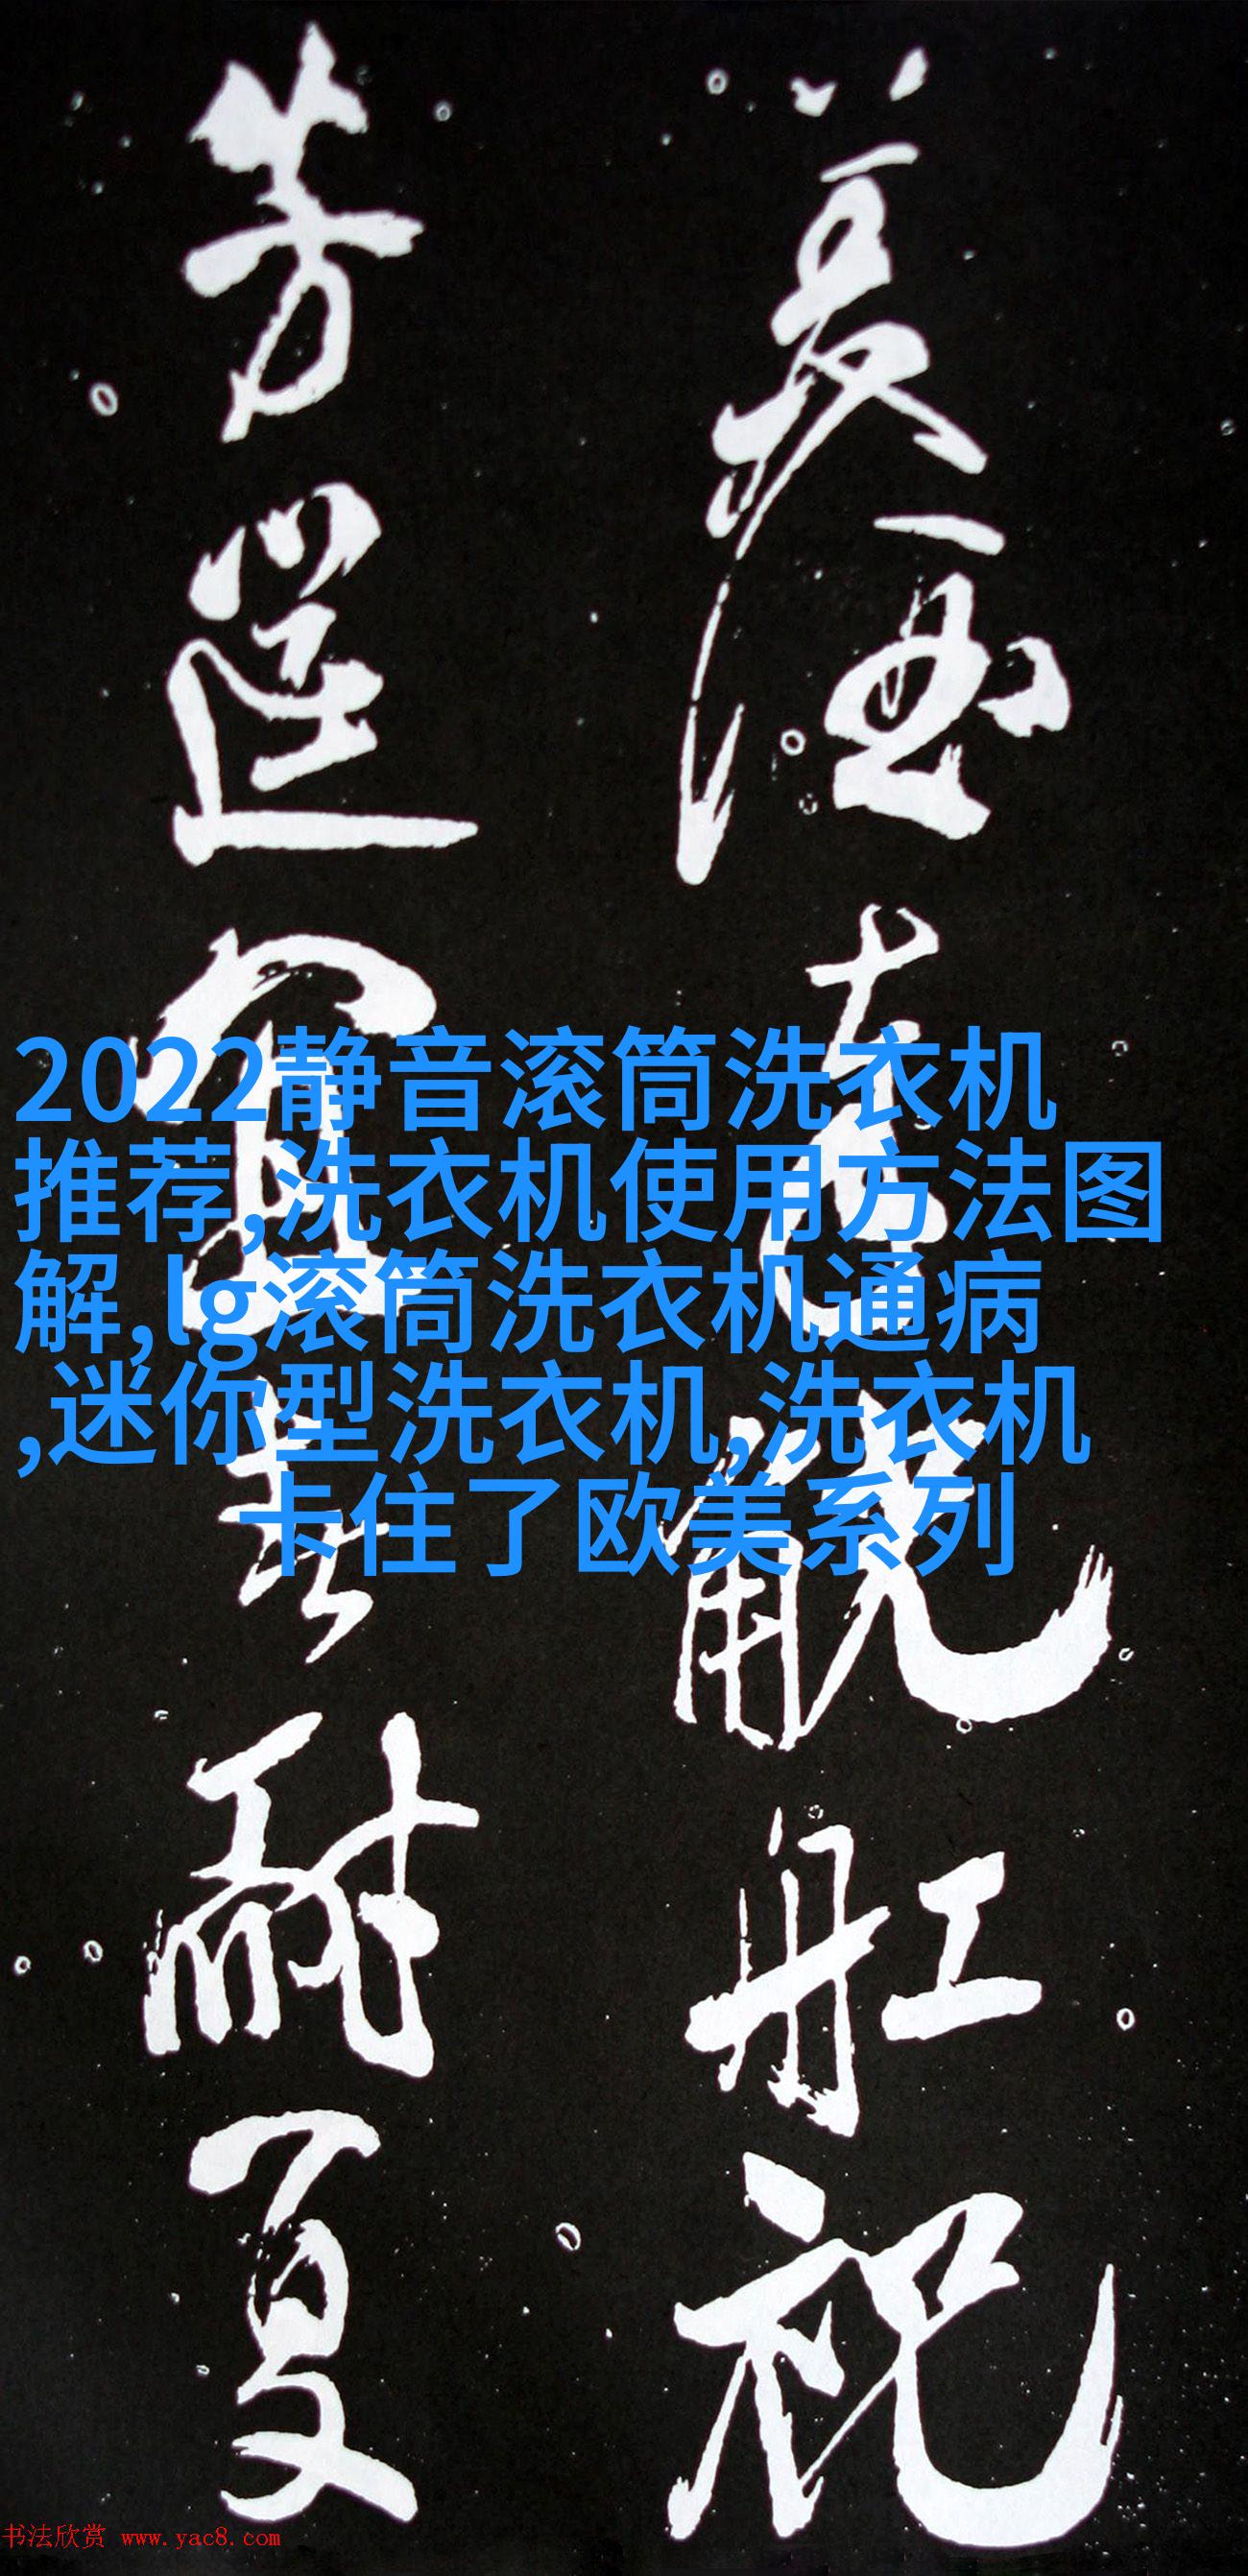 2022静音滚筒洗衣机
推荐,洗衣机使用方法图
解,lg滚筒洗衣机通病
,迷你型洗衣机,洗衣机
卡住了欧美系列
酒 觥舡祝
芳筵宜春耐夏
书法欣赏 www.yac8.com